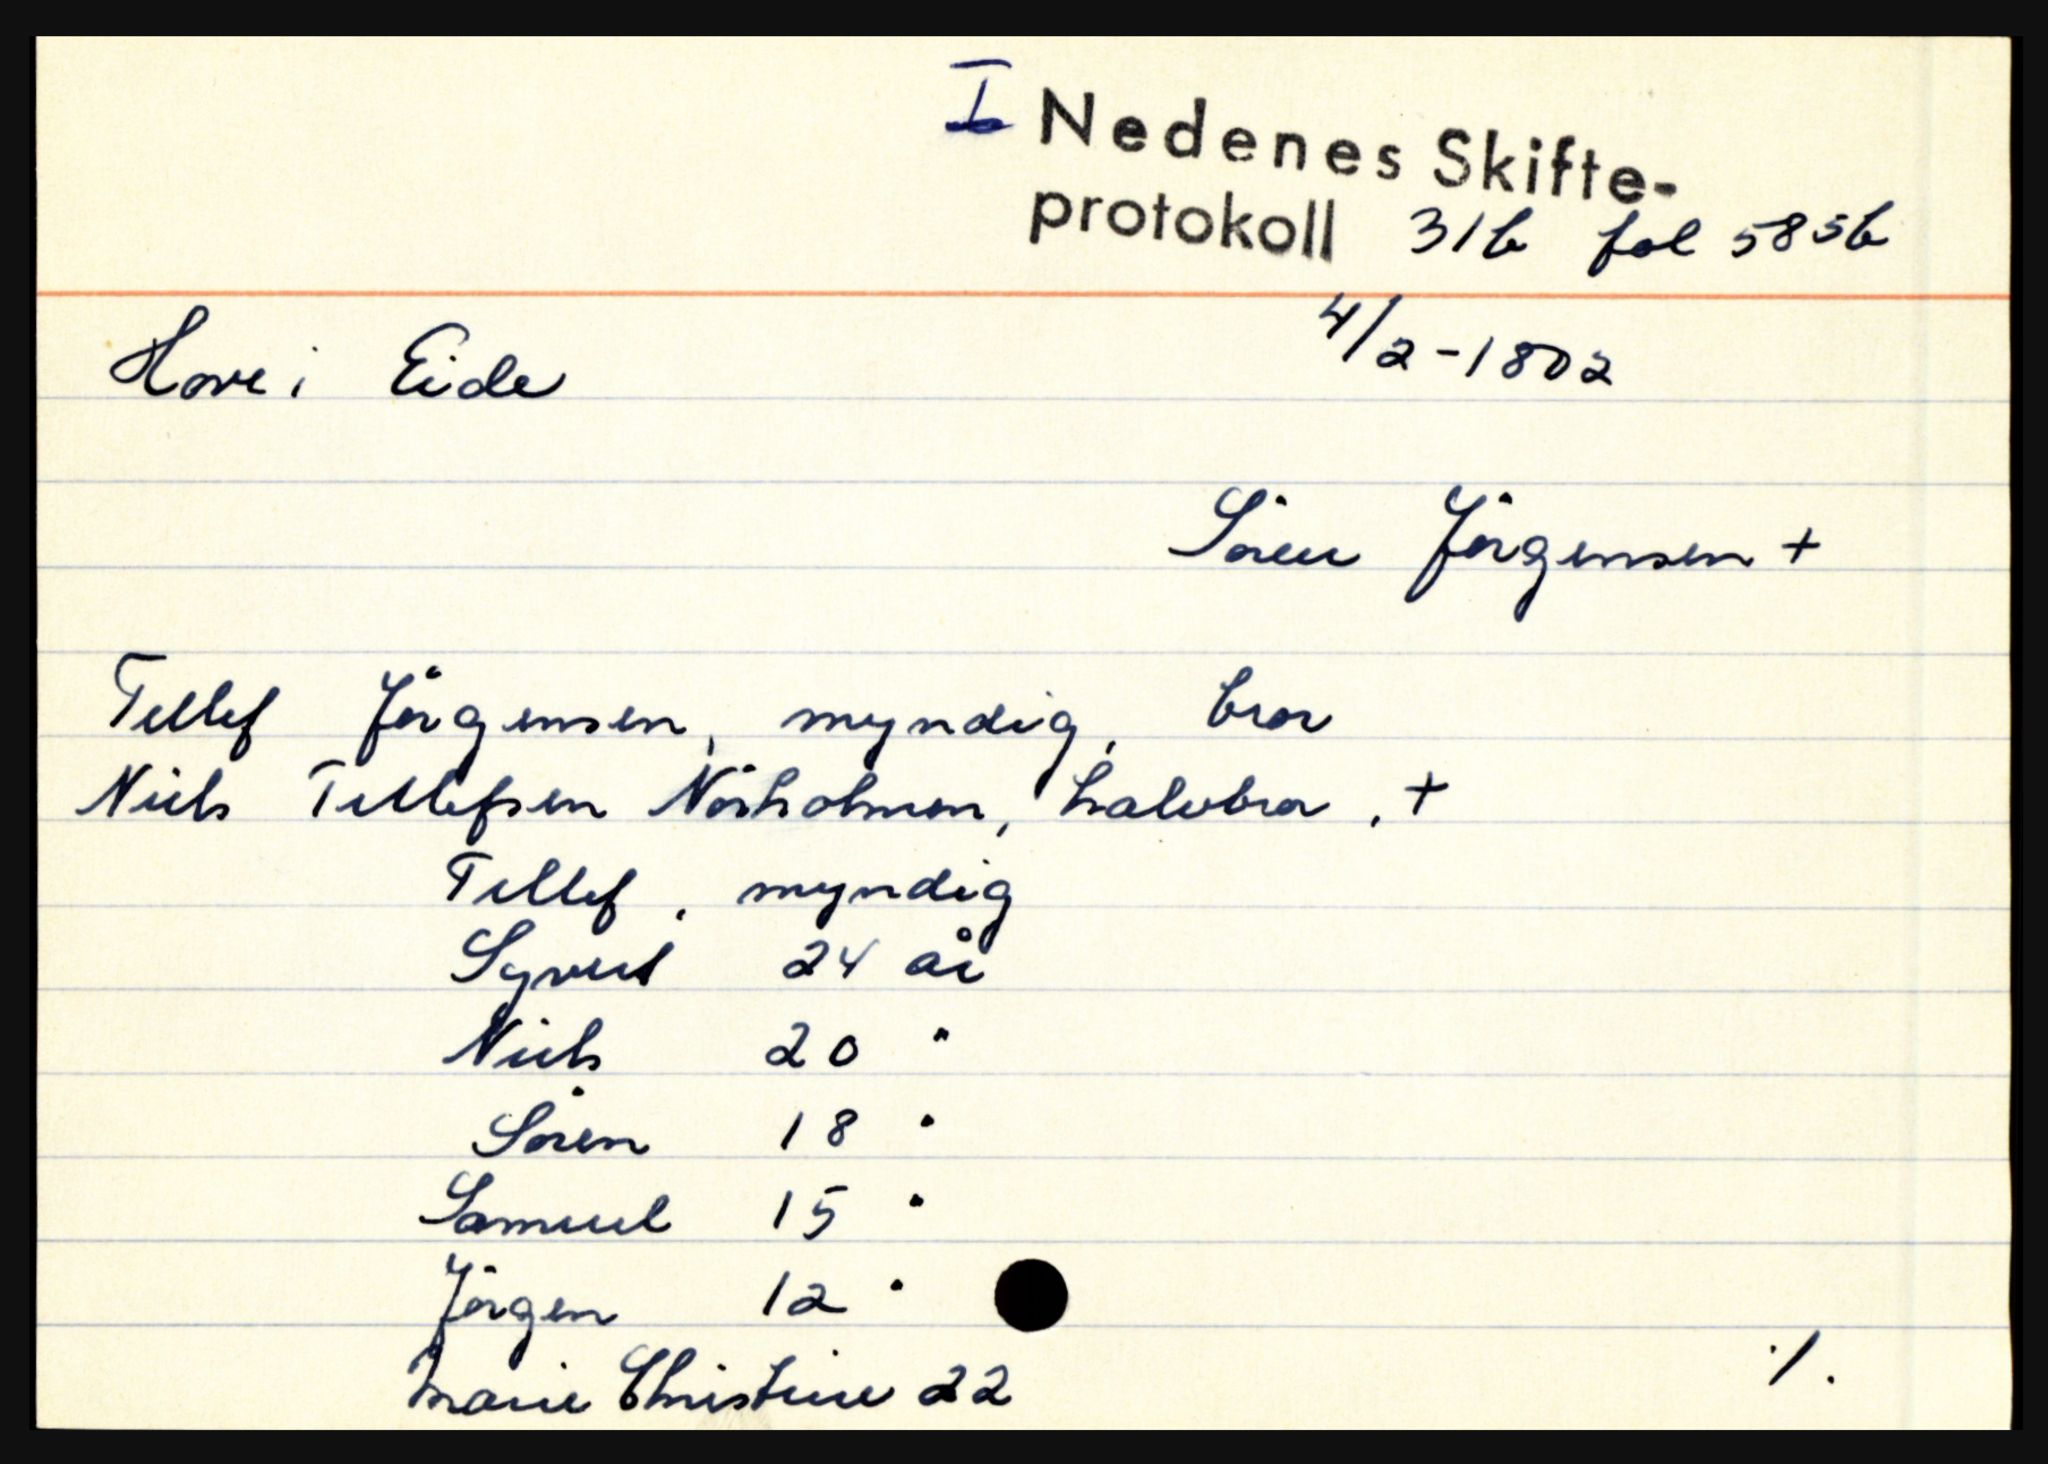 I Nedenes Skifte-
protokoll 31b fol 585b
Hove i Eide 4/2-1802
Sören Jörgensen +
Tellef Jörgensen, myndig, bror
Niels Tellefsen Nörholmen, halvbror, +
Tellef, myndig
Syvert 24 år
Niels 20 "
Sören 18 "
Samuel 15 "
Jörgen 12 "
Marie Christine 22
./.